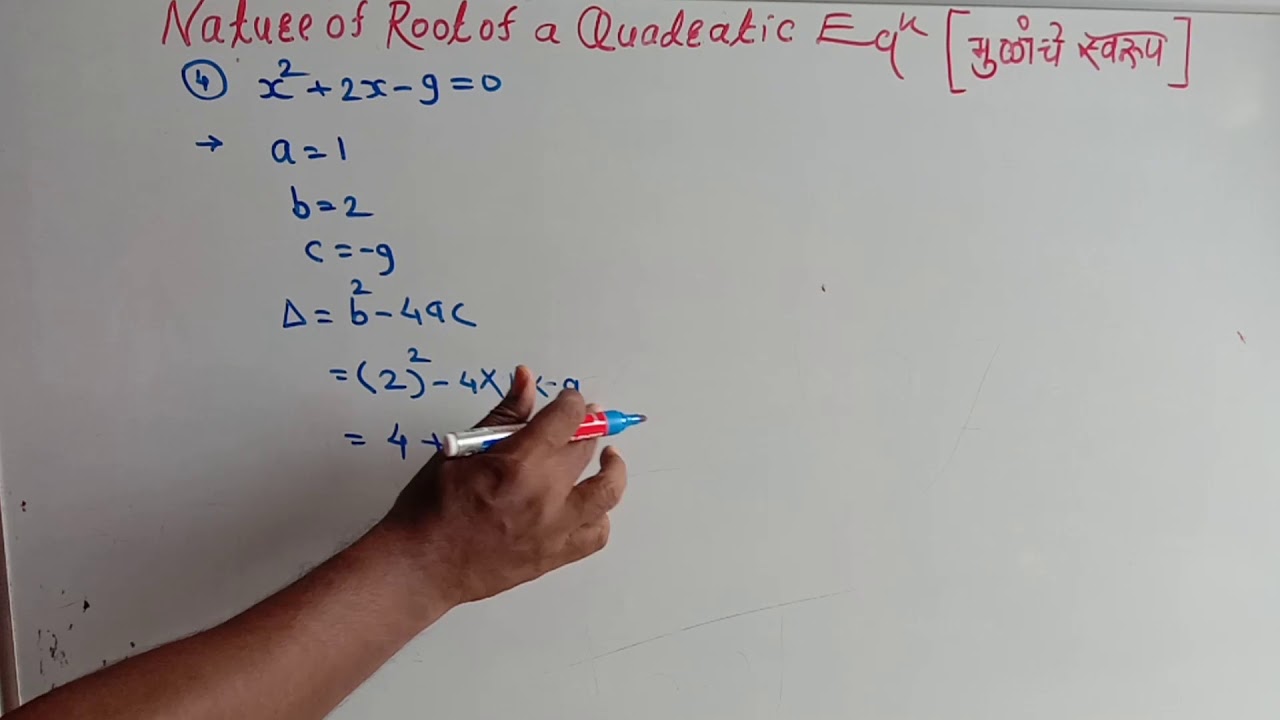 Nature of Root of a Quadratic Eqn [मुळांचे स्वरूप]
④ x² + 2x - 9 = 0
→ a = 1
b = 2
c = -9
Δ = b² - 4ac
= (2)² - 4 × 1 × -9
= 4 +